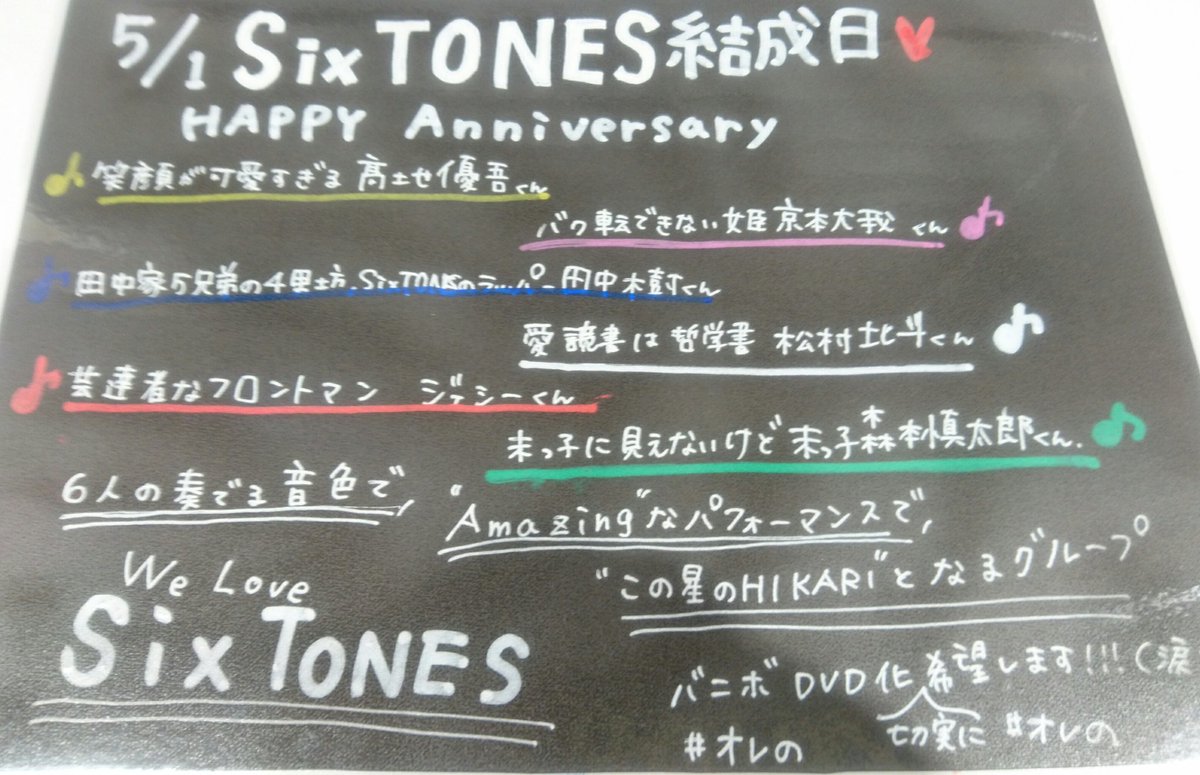 5/1 SixTONES結成日
HAPPY Anniversary
笑顔が可愛すぎる 髙土せ優吾くん
バク転できない姫 京本大我 くん
田中家5兄弟の4男坊、SixTONESのラッパー 田中樹くん
愛読書は哲学書 松村北斗くん
芸達者なフロントマン ジェシーくん
末っ子に見えないけど末っ子森本慎太郎くん.
6人の奏でる音色で,
"Amazing"なパフォーマンスで,
"この星のHIKARI"となるグループ
We Love
SixTONES
バニボ DVD化希望します!!!(涙
切実に
#オレの
#オレの